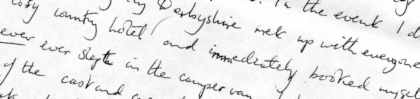 Derbyshire. In the event I d
cosy country hotel, met up with everyone
and immediately booked myse
ever ever slept in the camper van
of the cast and